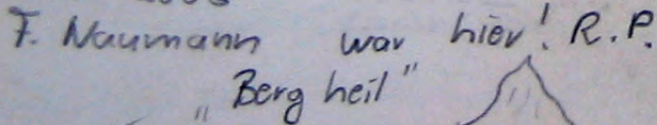 F. Naumann war hier! R.P.
„Berg heil"